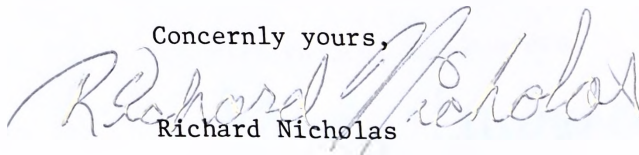 Concernly yours,
Richard Nicholas
Richard Nicholas